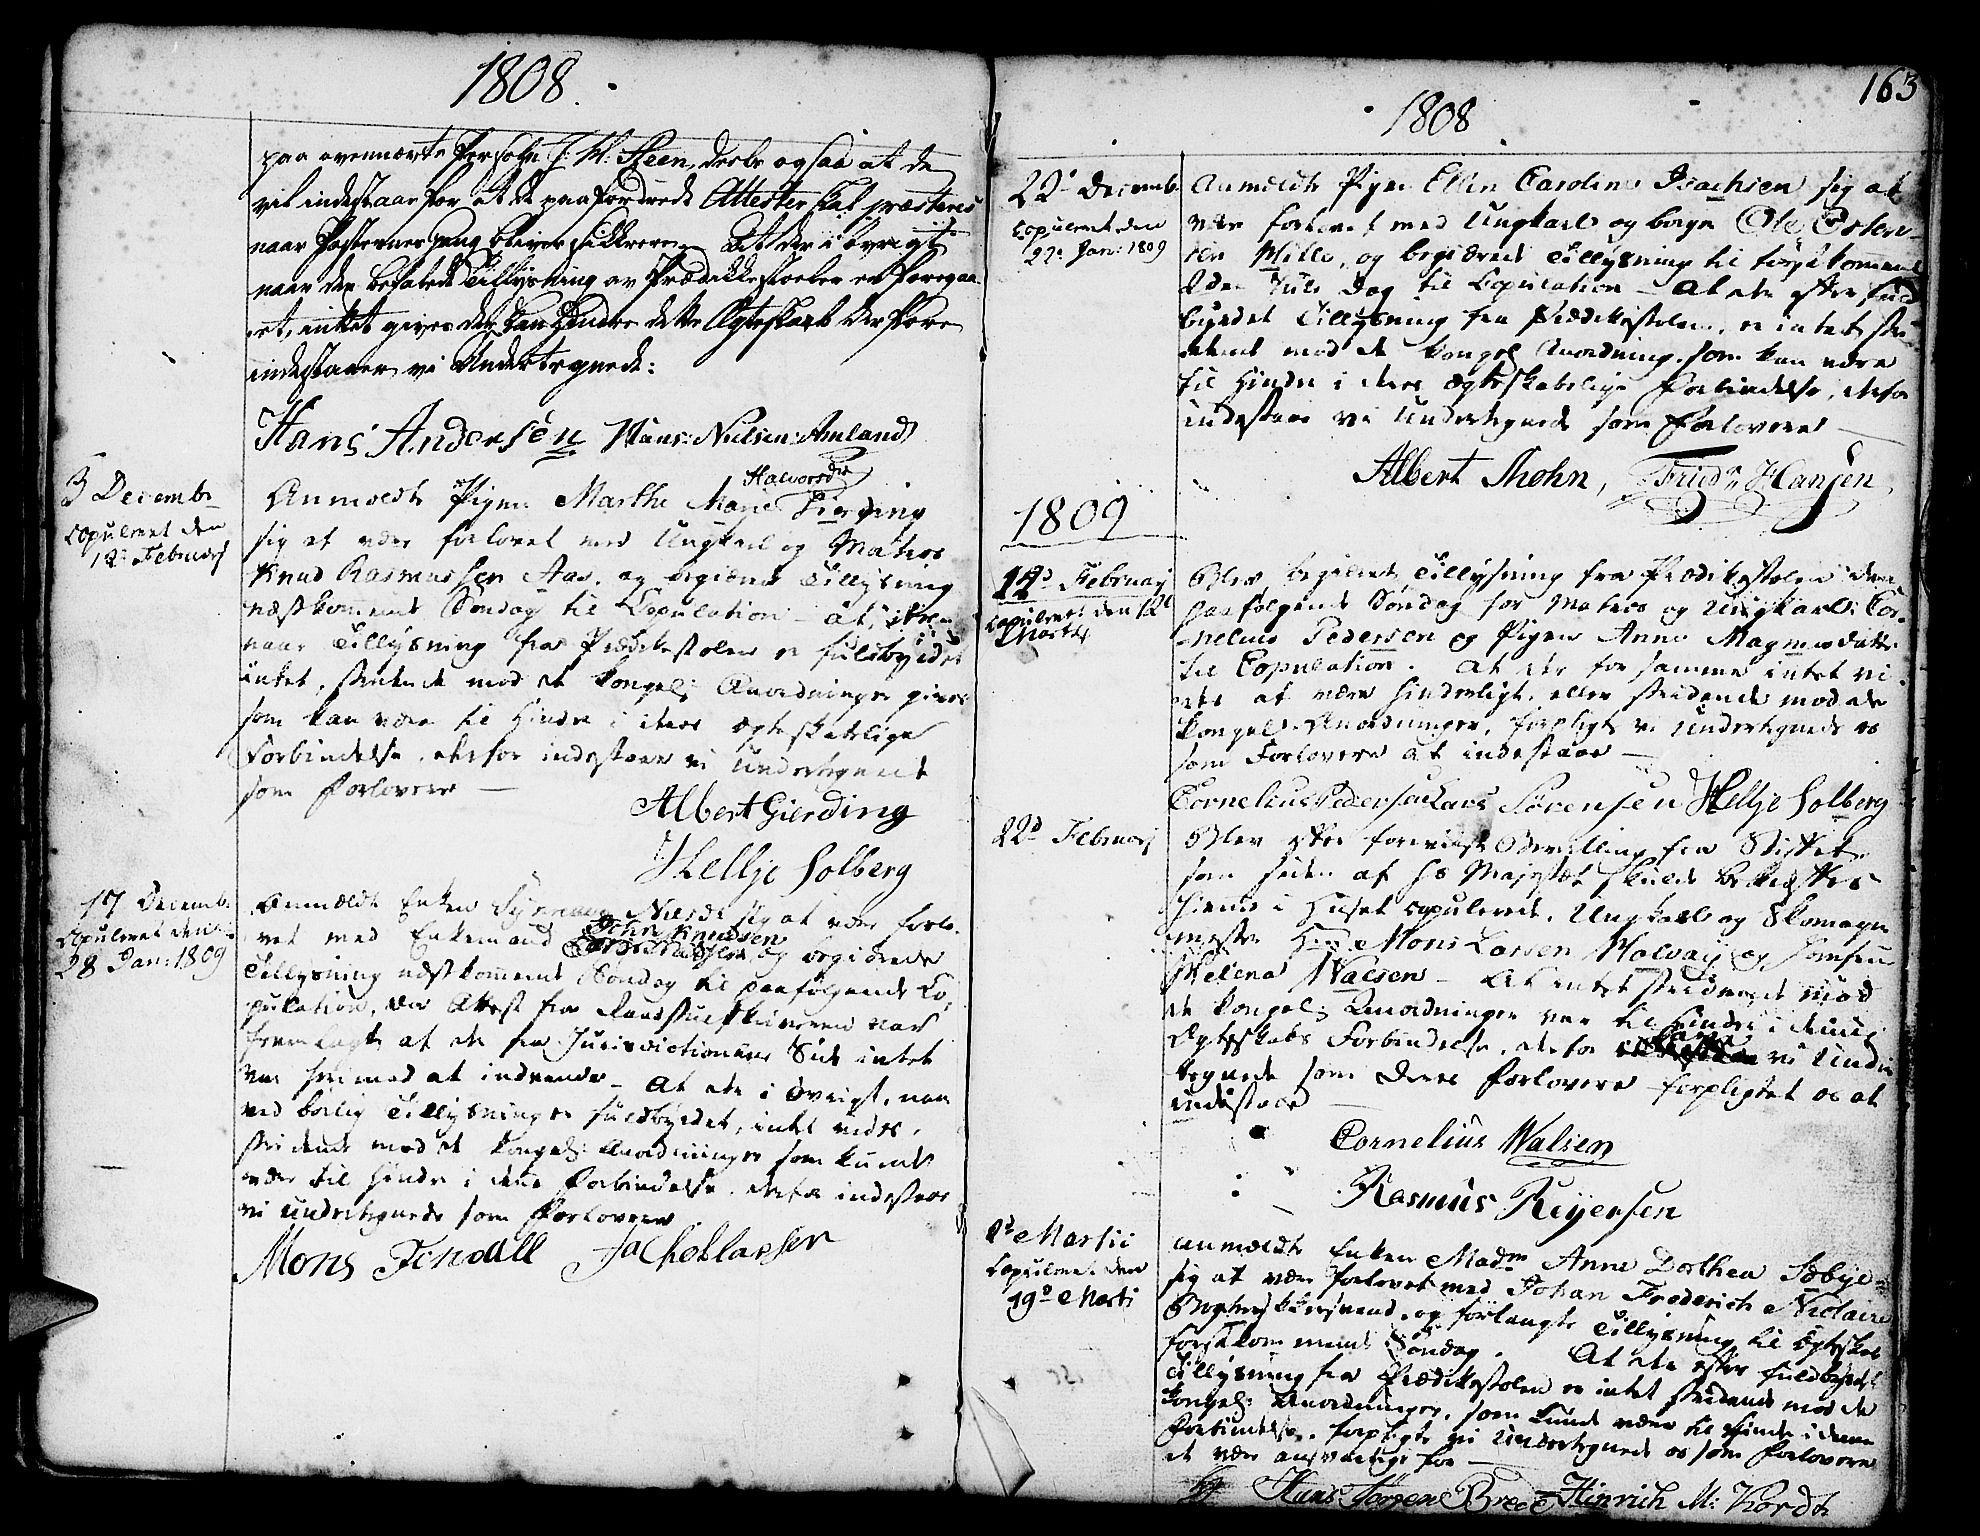 1808.
paa ovennævte Persohn J: W: Steen, desl: ogsaa at de
vil indestaar for at de paafordrede Attester skal præsteres
naar Posternes gang bliver sikkrere. At der i övrigt
naar den befalede Tillysning av Prædikkestoelen er foregaa-
et, intet gives der kan Hindre dette Ægteskaeb der fore
indestaaer vi Undertegnede:
Hans Andersen Hans: Nielsen: Amland
3 Decembr
Copuleret den
12: Februarj
Anmeldte Pigen Marthe Marie Halvorsdr Gierding
sig at være forlovet med Ungkarl og Matros
Knud Rasmussen Aas, og begierte Tillysning
næstkomende Söndag til Copulation - at, 
naar Tillysning fra Prædikestolen er fuldbyrdet
intet, stridende mod de kongel: Anordninger gives
som kan være til Hinder i deres ægteskabelige
Forbindelse, derfor indestaaer vi Undertegnede
som Forlovere —
Albert Gierding
Hellje Solberg
17 Decemb:
Copuleret den
28 Jan: 1809
Anmældte Enken Synneve Nielsd: sig at være forlo-
vet med Enkemand John Knudsen og begierede
Tillysning næstkomende Söndag til paafölgende Co-
pulation, der Attest fra Raadstueskriveren var
fremlagt at de fra Jurisdictionens Side intet
var herimod at indvende - At der i Övrigt, naar
ved börlig Tillysning er fuldbyrdet, intet vides,
stridende mod de kongel: Anordninger som kunde
være til Hinder i dette Forbindelse, derfor indestaae
vi Undertegnede som Forlovere
Mons Tendall Ja Chol Larsen
163
1808
22d Decemb
Copuleret den
22: Jan: 1809
Anmeldte Pigen Ellin Caroline Isachsen sig at
være forlovet med Ungkarl og borger Ole Osten-
sen Wille, og begierede Tillysning til förstkomende
2den Jule Dag til Copulation - At der efter fuld-
byrdet Tillysning fra Prædikestolen, er intet stri-
dende mod de kongel Anordning. som kan være
til Hinder i deres ægteskabelige Forbindelse, derfor
indestaae vi Undertegnede som Forlovere —
Albert Mohn, Fridr Hansen
1809
12d Februarj
Copuleret den 12t
Martj
Blev begieret Tillysning fra Prædikestolen den
paafölgende Söndag for Matros og Ungkarl: Cor-
nelius Pedersen og Pigen Anne Magnusdatter
til Copulation. At der for samme intet vi-
des at være hinderligt, eller stridende mod de
kongel: Anordninger, forpligte vi Undertegnede os
som Forlovere at indestaae —
Cornelius Pedersen Lars Sörensen Hellje Solberg
22d Februarj
Blev efter foreviiste Bevilling fra Stiftet
som siden af Hs Majestæt skulde bekræftes
hiemme i Huset copulerede, Ungkarl og Skomager
mester Hr Mons Larsen Malvaÿ og Jomfrue
Helena Walsen - At intet stridende mod
de kongel: Anordninger var til Hinder i denne
Ægteskabs Forbindelse, derfor vi Under-
tegnede som deres Forlovere forpligtet os at
indestaae —
Cornelius Walsen
Rasmus Reÿersen
2d Martii
Copuleret den
19d Marti
Anmældte Enken Madm Anne Dorthea Sæbÿe
sig at være forlovet med Johan Frederich Nicolaisen
Bogtrykkersvend, og forlangte Tillysning til Ægteskab
förstkommende Söndag. At der efter fuldbyrdet
Tillysning fra Prædikestolen er intet stridende mod de
kongel: Anordninger, som kunde være til Hinder i denne
Forbindelse, forpligte vi Undertegnede os som Forlovere
at være ansvarlige for —
Hans Jörgen Bree Hinrich M: Kordt